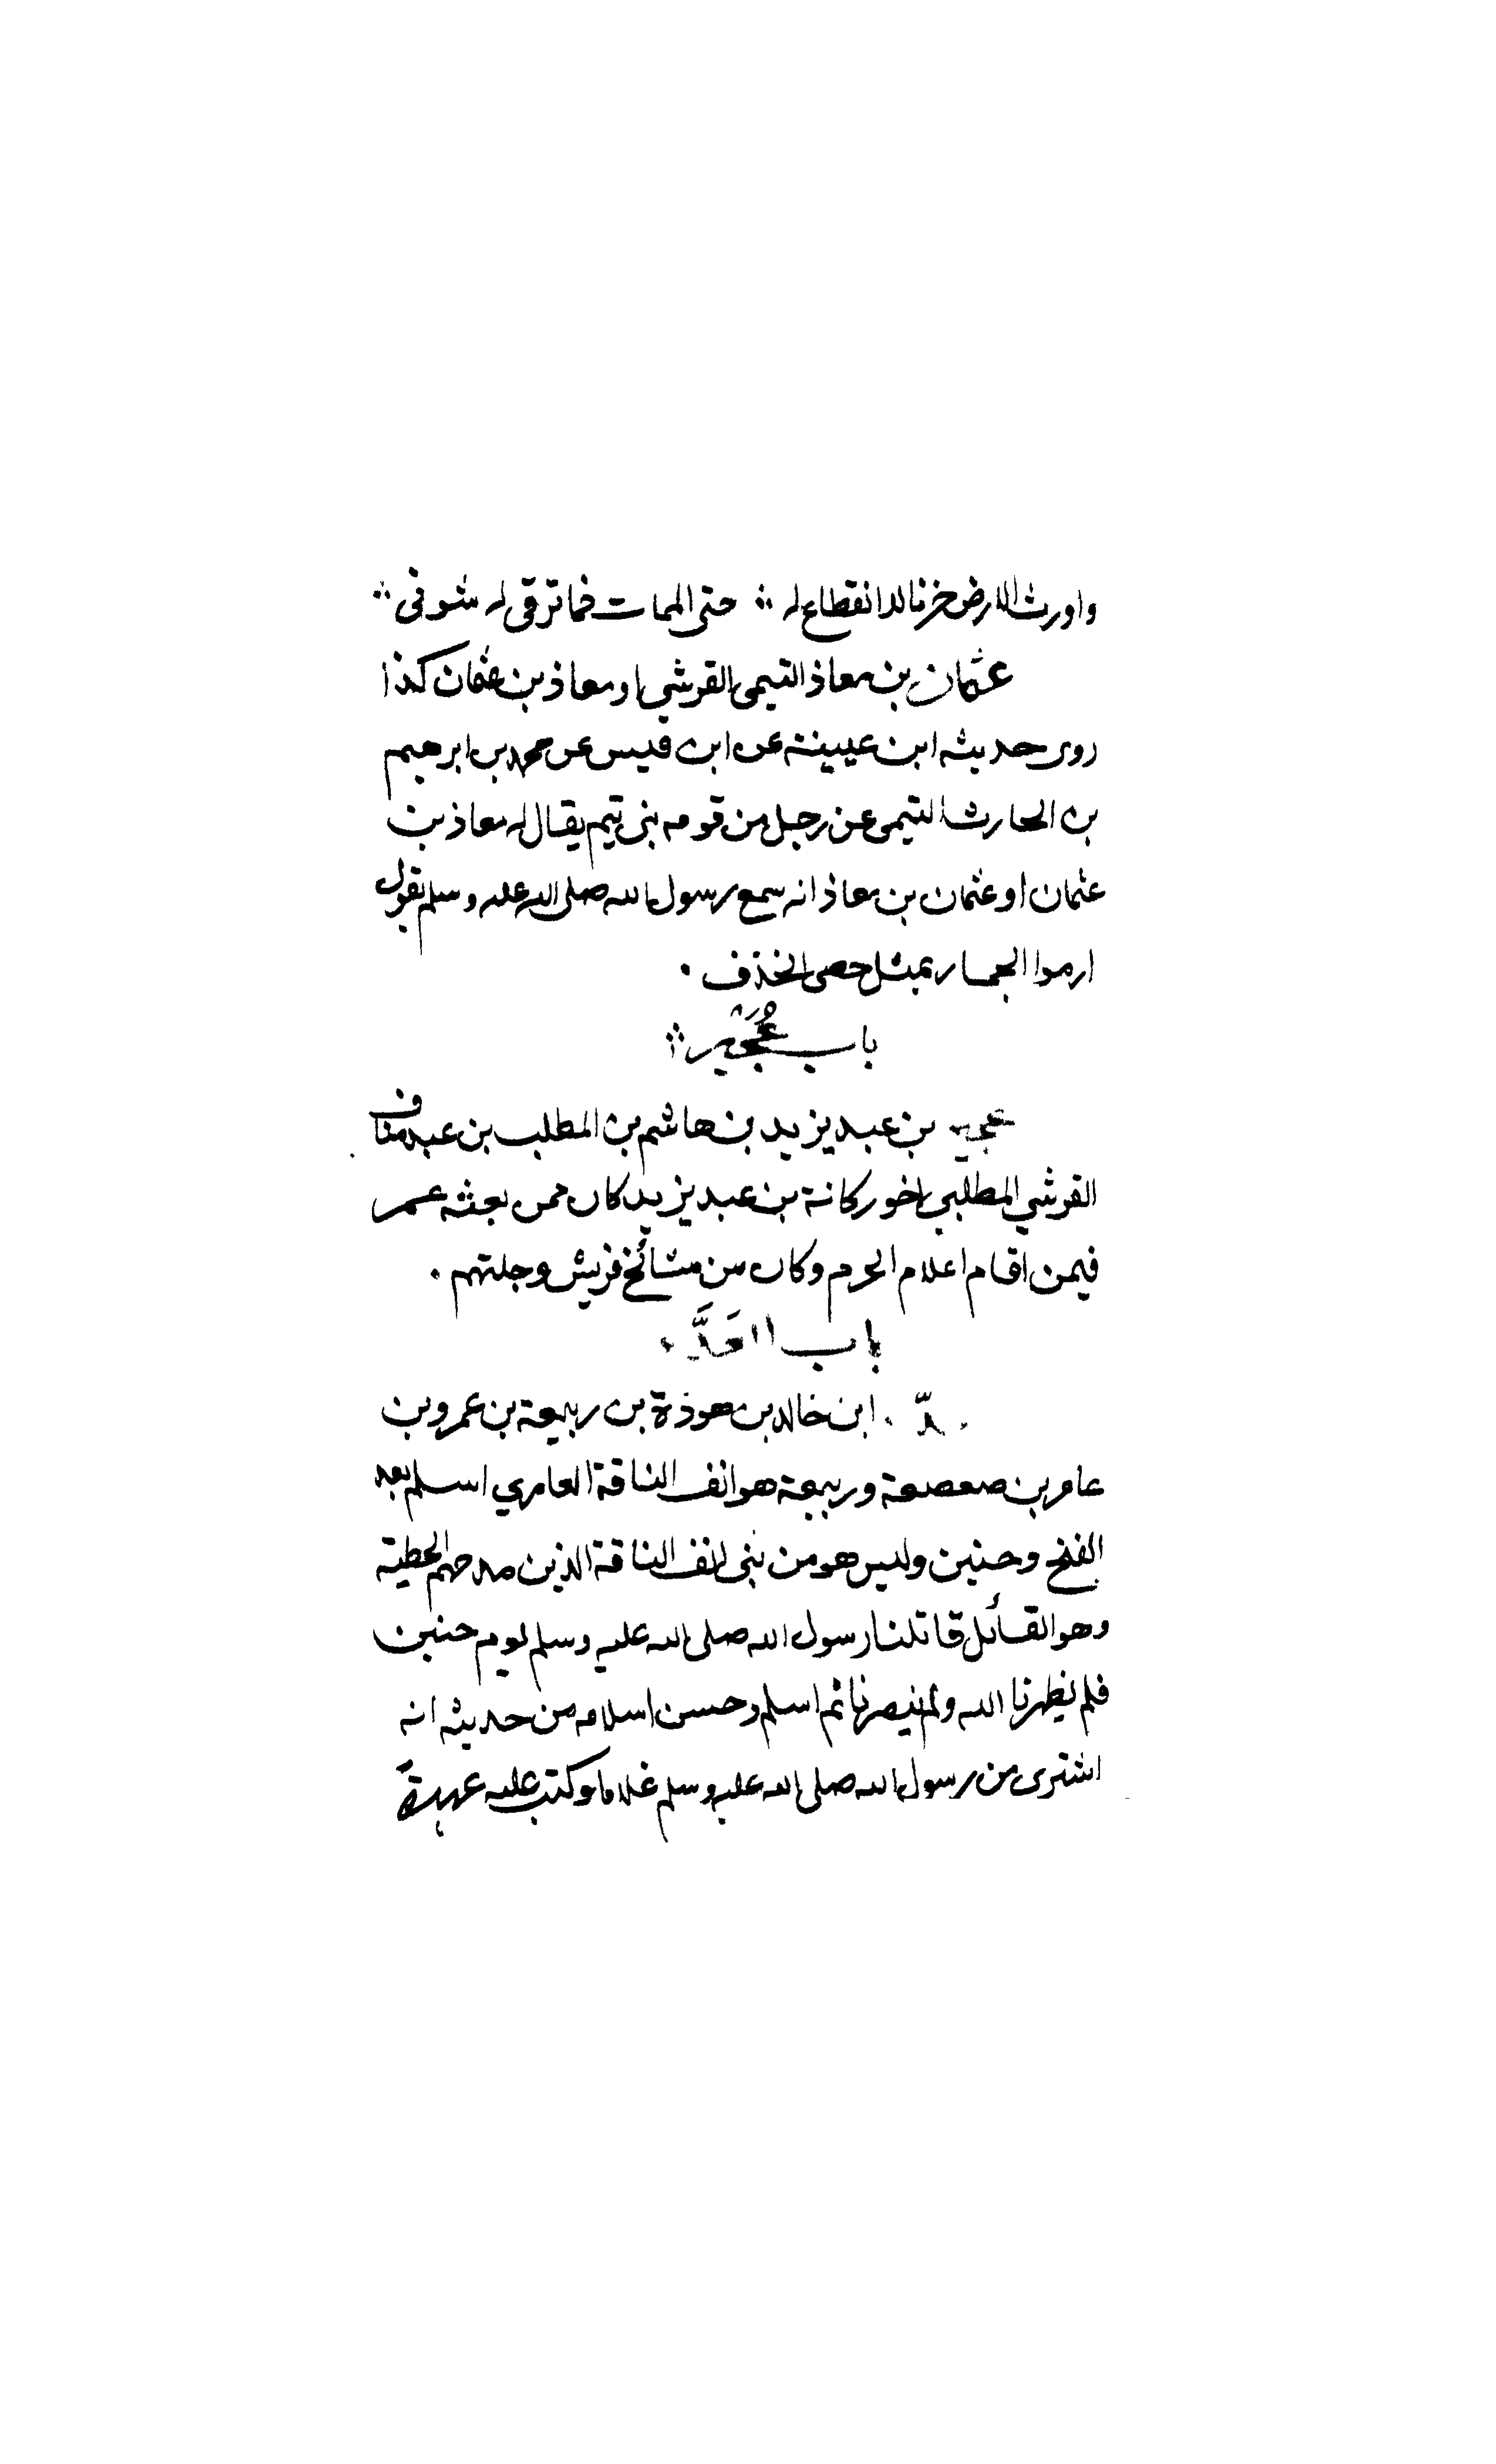 واورث الارض حزنا لا انقطاع له ∴ حتى الممات فما ترقى له شوفى ∴
عثمان بن معاذ التيمى القرشي او معاذ بن عثمان كذا
روى حديثه ابن عيينة عن ابن قيس عن محمد بن ابرهيم
بن الحارث التيمى عن رجل من قومه بنى تيم يقال له معاذ بن
عثمان او عثمان بن معاذ انه سمع رسول الله صلى الله عليه وسلم يقول
ارموا الجمار بمثل حصى الخذف .
باب عُجَيْر ∴
عجير بن عبد يزيد بن هاشم بن المطلب بن عبد مناف
القرشي المطلبي اخو ركانة بن عبد يزيد كان ممن بعثه عمر
فيمن اقام اعلام الحرم وكان من مشائخ قريش وجلتهم .
باب العَدَّ
ابن خالد بن هوذة بن ربيعة بن عمرو بن
عامر بن صعصعة وربيعة هو انف الناقة العامري اسلم بعد
الفتح وحنين وليس هو من بنى انف الناقة الذين مدحهم الحطيئة
وهو القائل قاتلنا رسول الله صلى الله عليه وسلم يوم حنين
فلم يظهرنا الله ولم ينصرنا ثم اسلم وحسن اسلامه من حديثه انه
اشترى من رسول الله صلى الله عليه وسلم غلاما وكتب عليه عهدةً